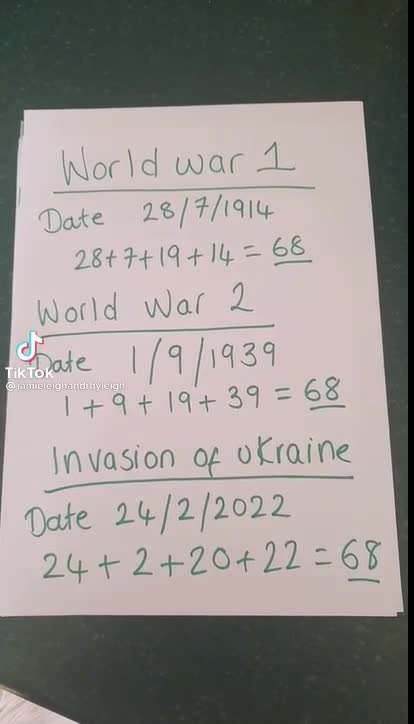 World war 1
Date 28/7/1914
28+7+19+14 = 68
World War 2
Date 1/9/1939
TikTok
@jamieleighandrhyleigh
1 + 9 + 19 + 39 = 68
Invasion of uKraine
Date 24/2/2022
24 + 2 + 20 + 22 = 68